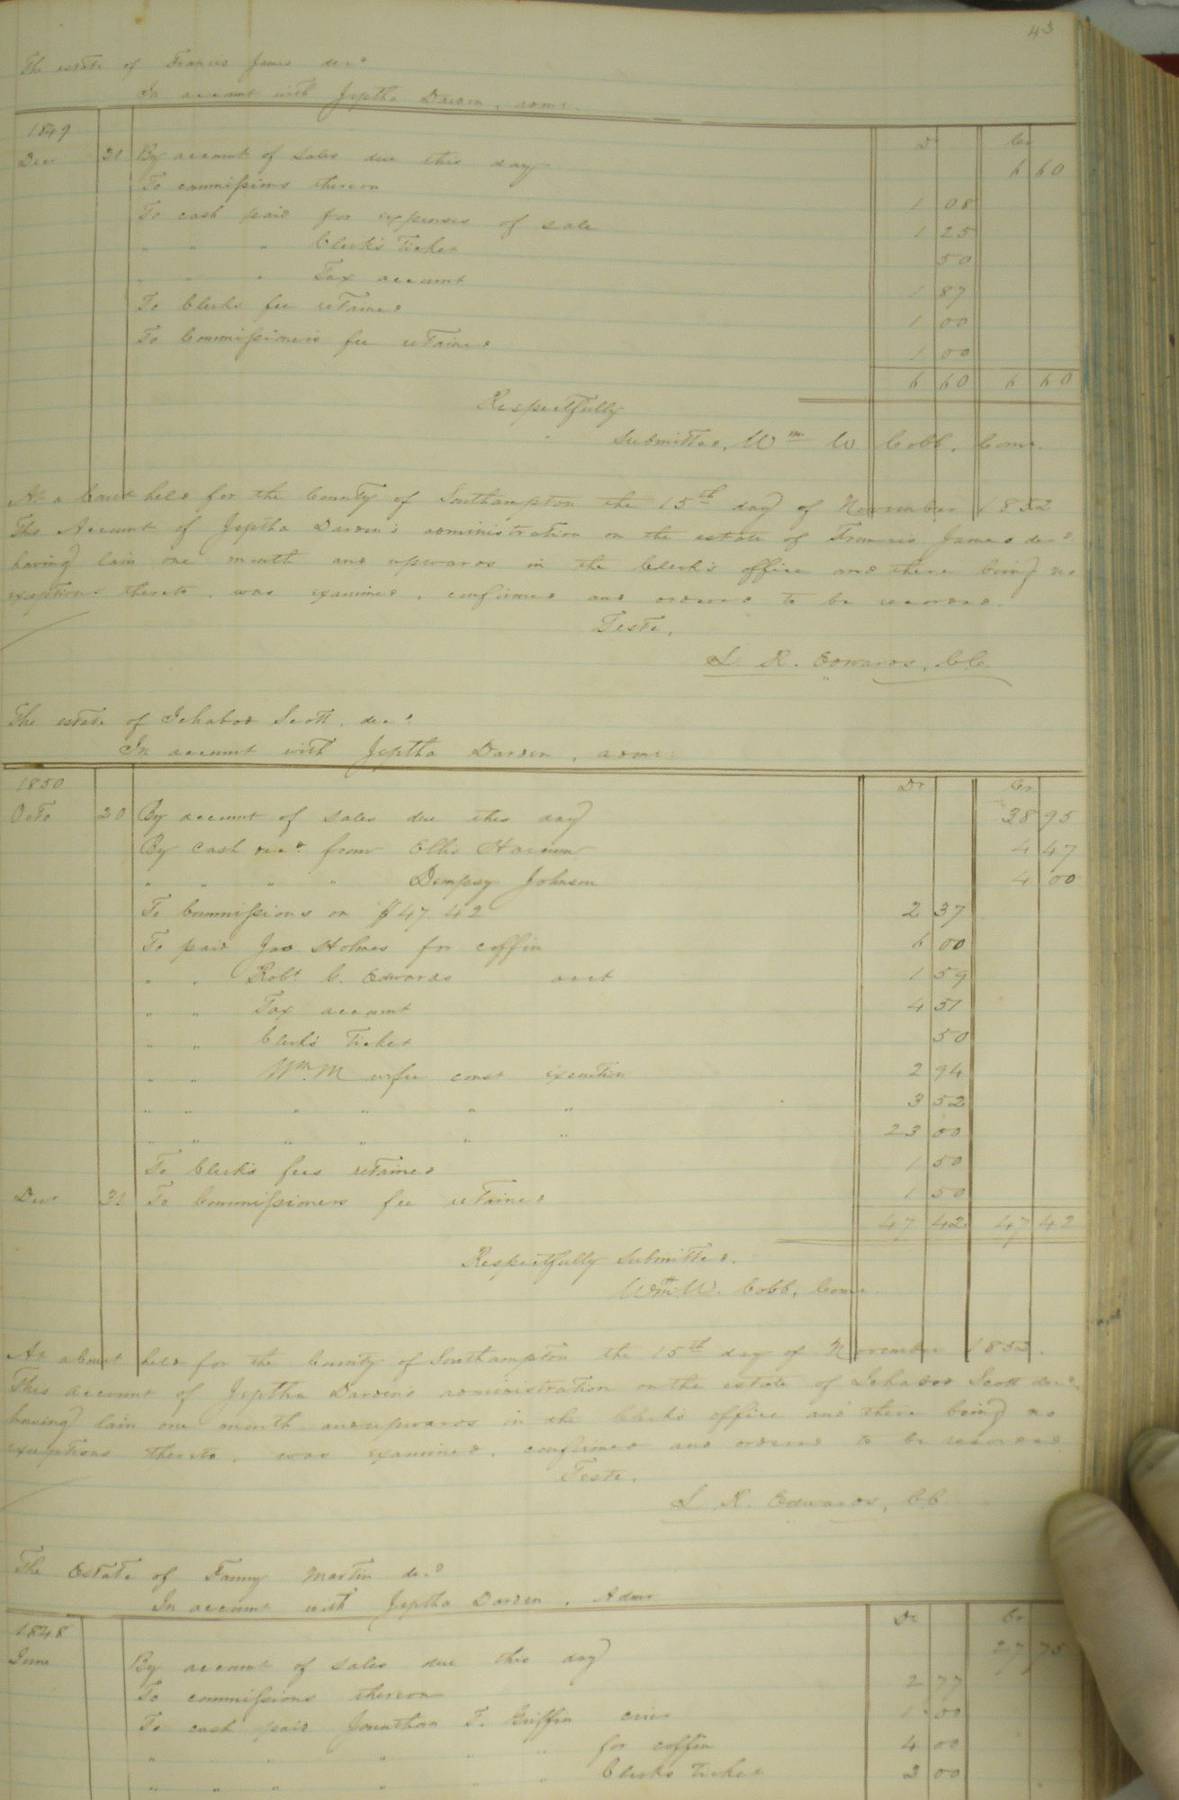 43
The estate of Francis James decd
In account with Jeptha Darden, admr.
1849 Dr Cr
Dec 31 By account of sales due this day 6 60
To commissions thereon 1 08
To cash paid for expenses of sale 1 25
" " " Clerk's Ticket 50
" " " Tax account 1 87
To Clerks fee retained 1 00
To Commissioners fee retained 1 00
6 60 6 60
Respectfully
Submitted, Wm W Cobb, Comr.
At a Court held for the County of Southampton the 15th day of November 1852
This Account of Jeptha Darden's administration on the estate of Francis James decd
having lain one month and upwards in the Clerk's office and there being no
exceptions thereto, was examined, confirmed and ordered to be recorded.
Teste,
L. R. Edwards, CC
The estate of Ichabod Scott, decd.
In account with Jeptha Darden, admr.
1850 Dr Cr
Octo 20 By account of sales due this day 38 95
By cash recd. from Ellis 4 47
" " " " Dempsey Johnson 4 00
To Commissions on $47.42 2 37
To paid Jas Holmes for coffin 6 00
" " Robt. C. Edwards acct 1 59
" " Tax account 4 51
" " Clerk's Ticket 50
" " Wm. M const execution 2 94
" " " " " " 3 52
" " " " " " 23 00
To Clerk's fees retained 1 50
Dec 31 To Commissioners fee retained 1 50
47 42 47 42
Respectfully Submitted.
Wm. W. Cobb, Comr.
At a Court held for the County of Southampton the 15th day of November 1852.
This account of Jeptha Darden's administration on the estate of Ichabod Scott decd,
having lain one month and upwards in the Clerk's office and there being no
exceptions thereto, was examined, confirmed and ordered to be recorded
Teste,
L. R. Edwards, CC
The Estate of Fanny Martin decd
In account with Jeptha Darden, Admr
1848 Dr Cr
June By account of sales due this day 27 75
To commissions thereon 2 77
To cash paid Jonathan T. Griffin crier 1 00
" " " " " for coffin 4 00
" " " " " Clerks Ticket 2 00